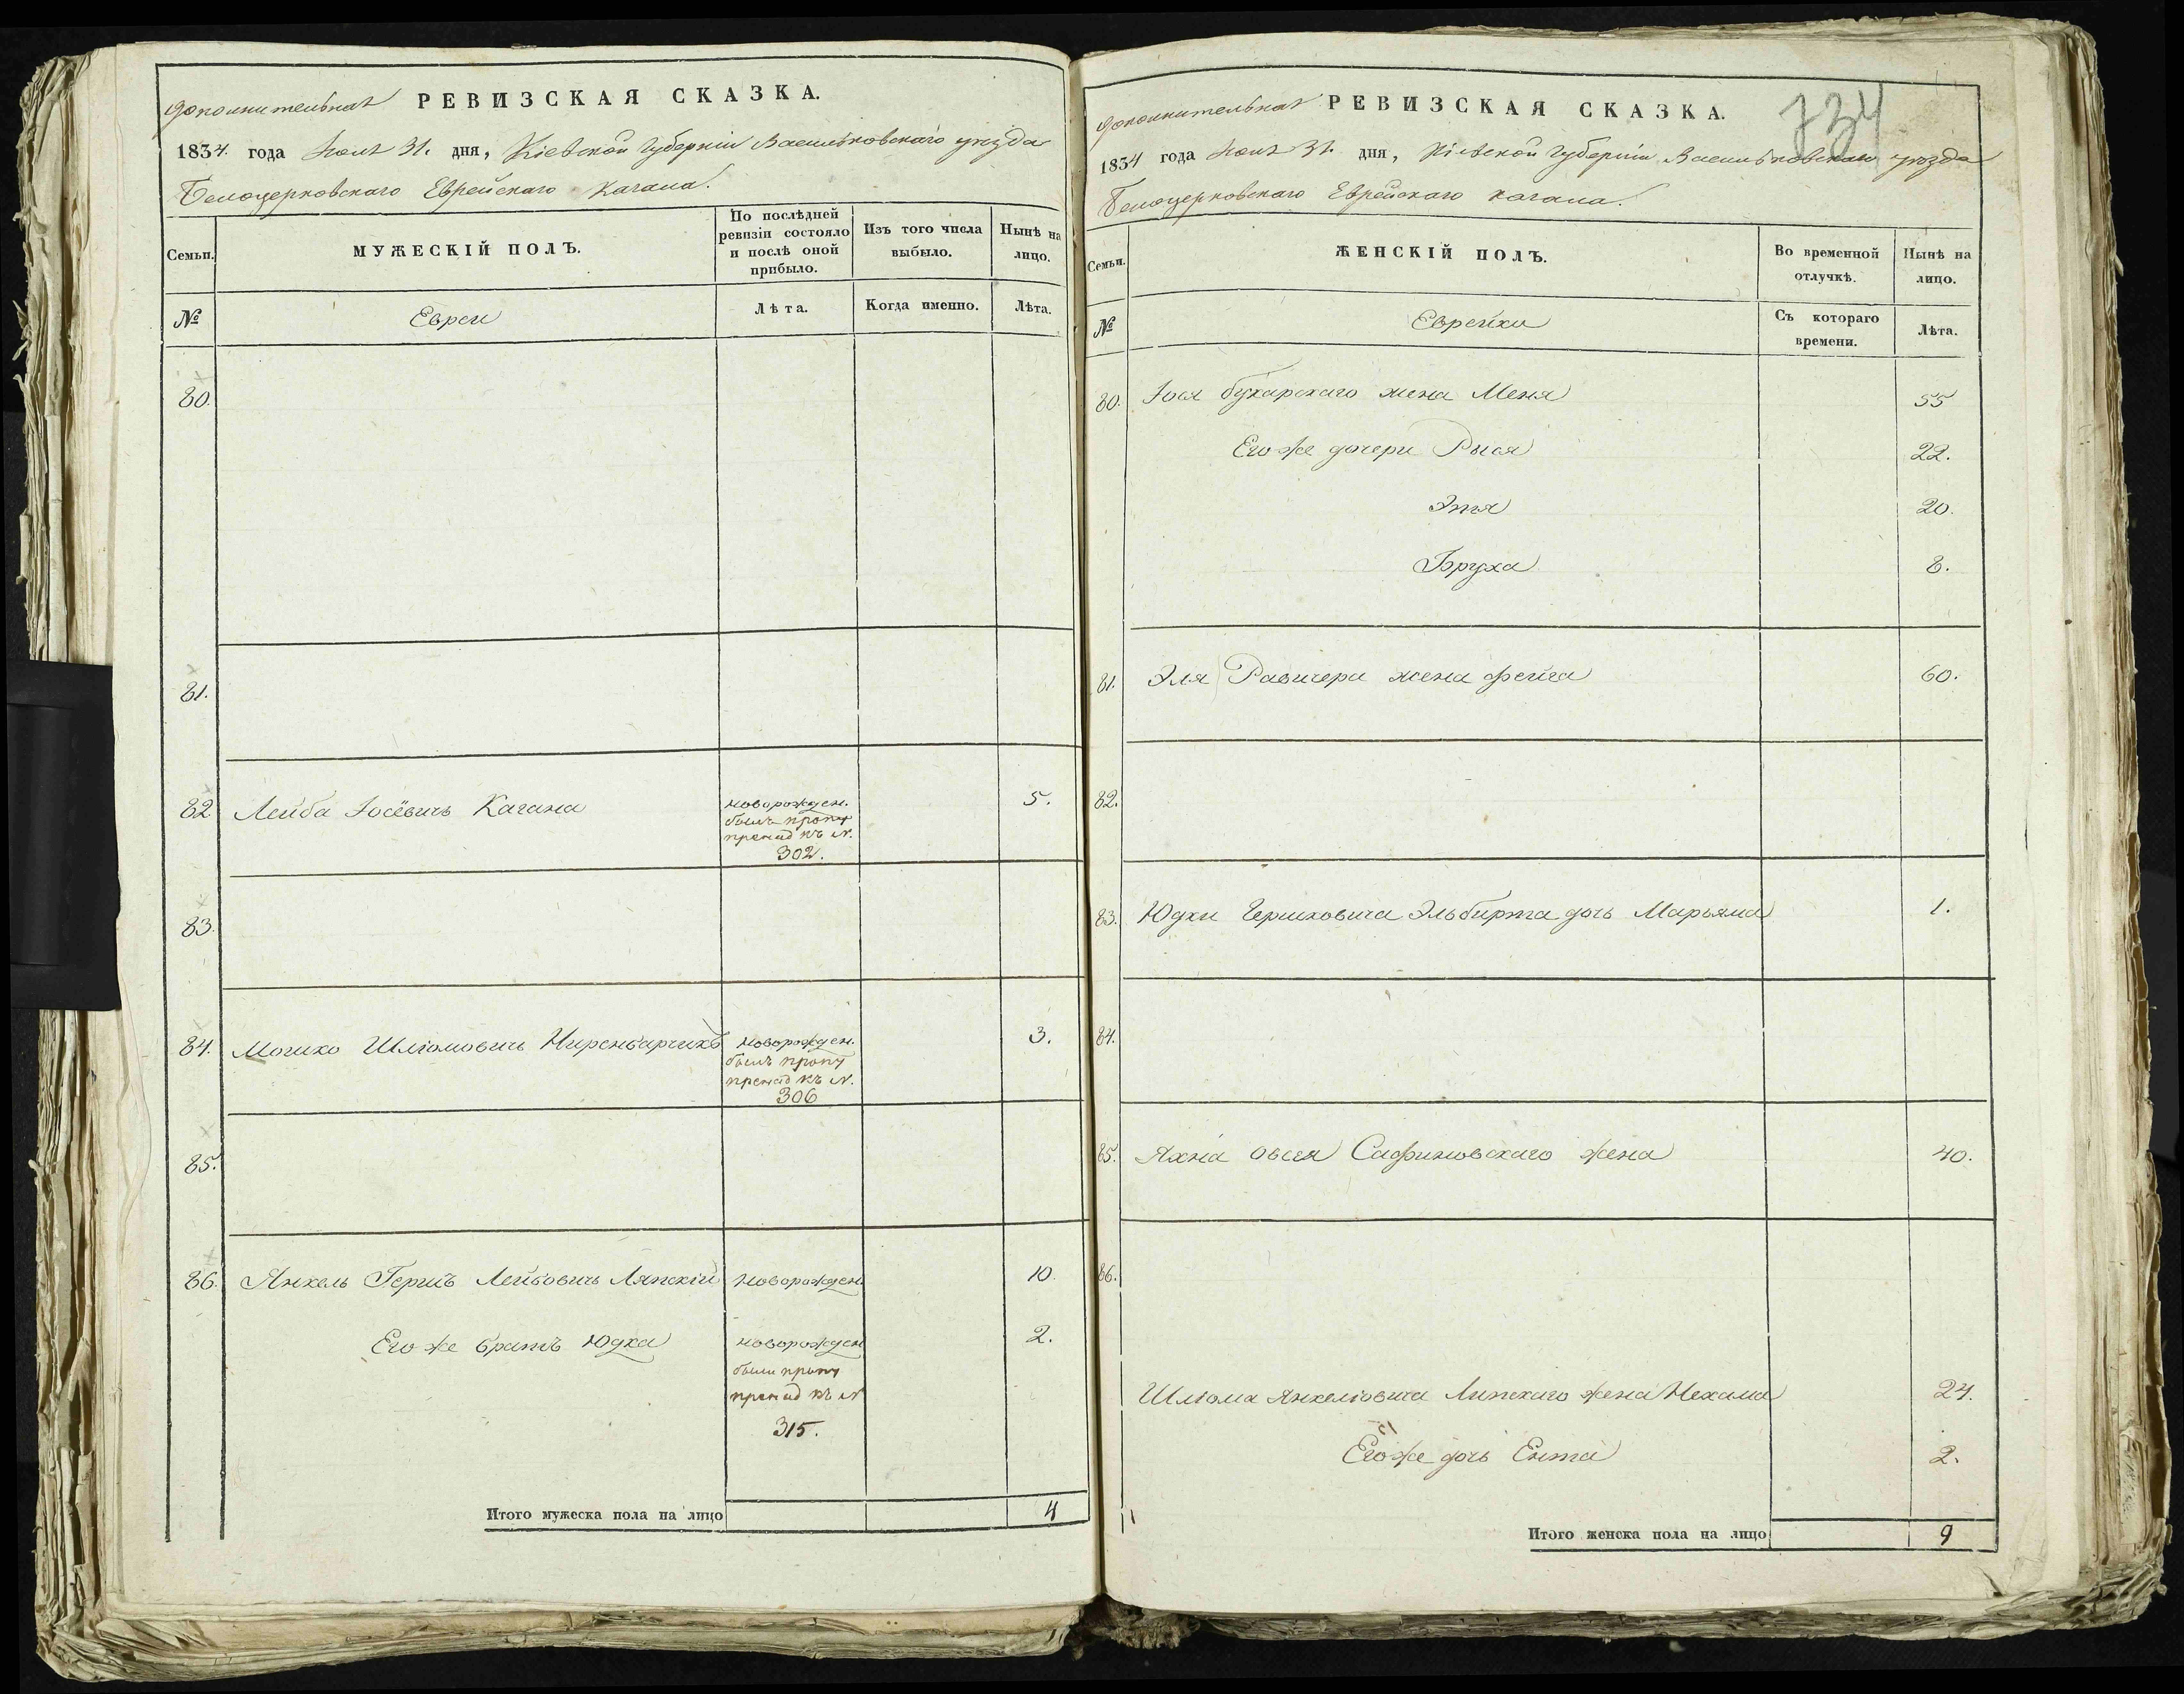 дополнительная РЕВИЗСКАЯ СКАЗКА.
1834. года Іюля 31. дня, Кіевской Губерніи Васильковскаго уезда
Белоцерковскаго Еврейскаго Кагала.
Семьи.
МУЖЕСКІЙ ПОЛЪ.
По послѣдней
ревизіи состояло
и послѣ оной
прибыло.
Изъ того числа
выбыло.
Нынѣ на
лицо.
№
Евреи
Лѣта.
Когда именно.
Лѣта.
80.
81.
82 Лейба Іосёвичъ Кагана новорожден. 5.
былъ проп
къ N.
302.
83.
84. Мошко Шліомовичъ Ниренбарчикъ новорожден. 3.
былъ проп
къ N.
306
85.
86. Янкель Гершъ Лейбовичъ Ляпскій новорожден 10.
Его же братъ Юдка новорожден 2.
были проп
къ N
315.
Итого мужеска пола на лицо 4
734
дополнительная РЕВИЗСКАЯ СКАЗКА.
1834 года Іюля 31. дня, Кіевской Губерніи Васильковскаго уезда
Белоцерковскаго Еврейскаго кагала.
Семьи.
ЖЕНСКІЙ ПОЛЪ.
Во временной
отлучкѣ.
Нынѣ на
лицо.
№
Еврейки
Съ котораго
времени.
Лѣта.
80. Іося бухарскаго жена Меня 55
Его же дочери Рыся 22.
Этя 20.
Бруха 8.
81. Эля Равичера жена фейга 60.
82.
83. Юдки Гершковича Эльбирта дочь Марьяма 1.
84.
85. Яхна Овсея Сафиновскаго жена 40.
86.
Шліома Янкеліовича Липскаго жена Нехама 24.
Его же дочь Ента 2.
Итого женска пола на лицо 9